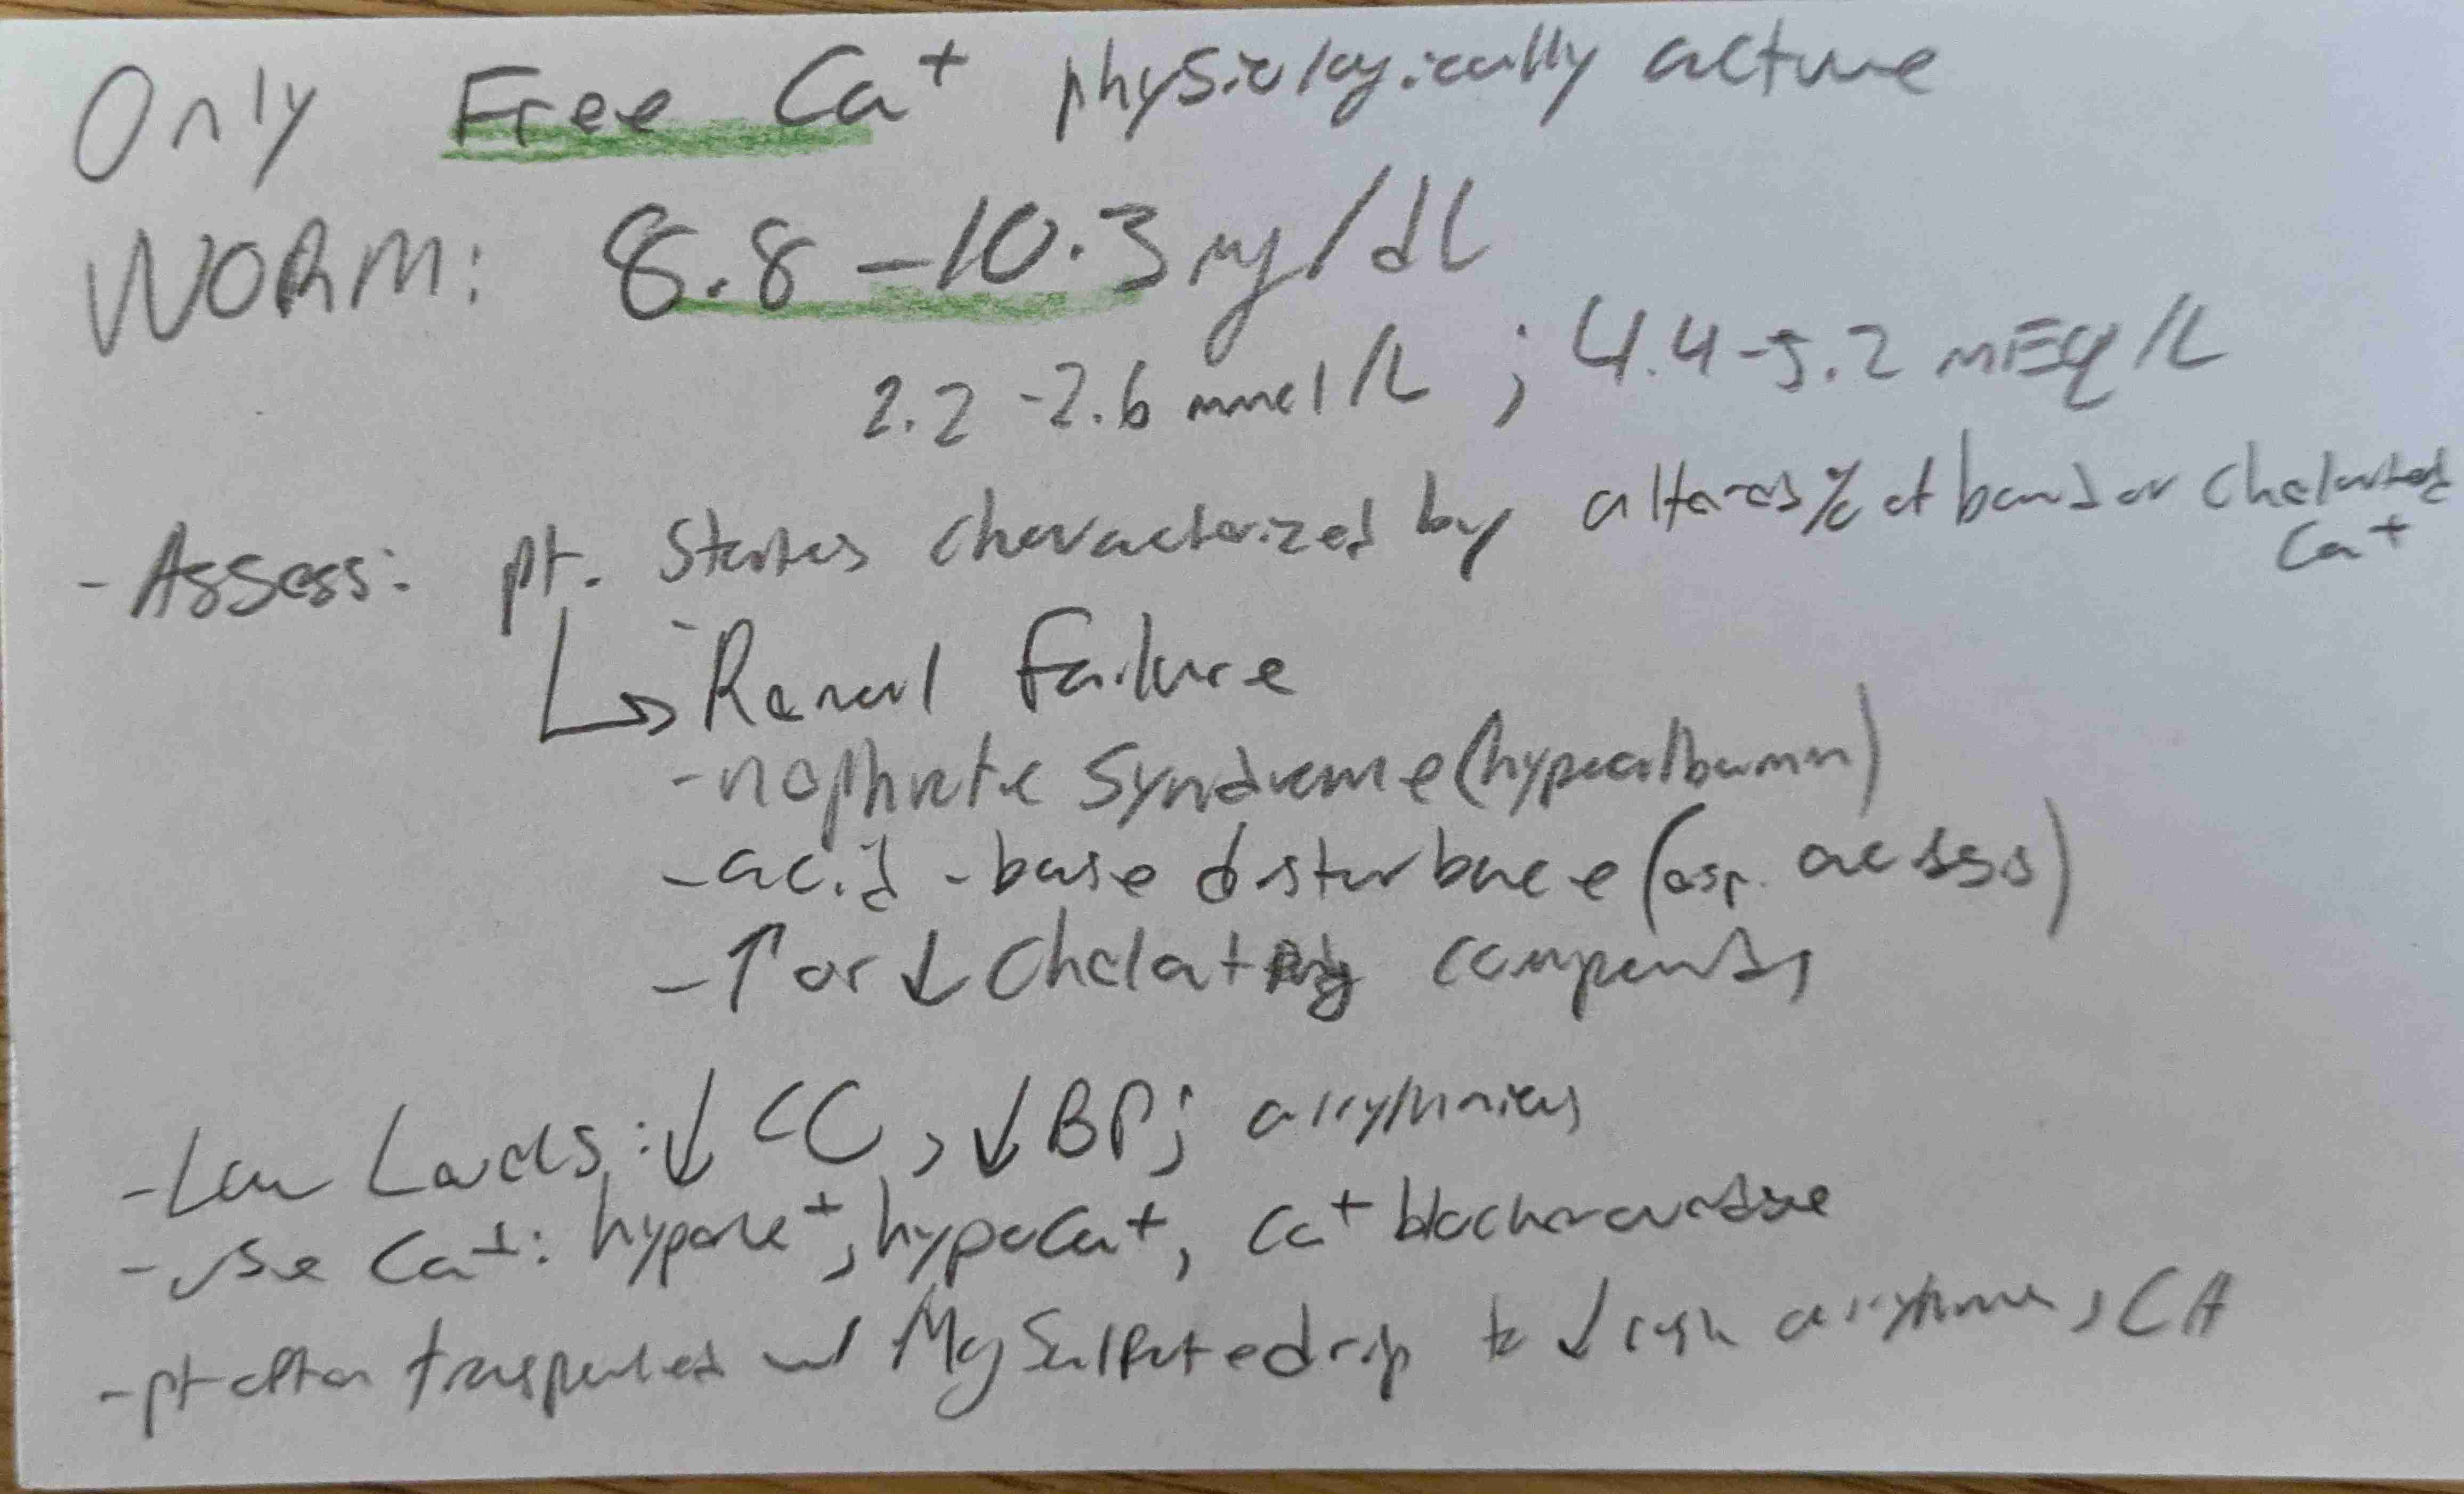 Only Free Ca+ physiologically active
NORM: 8.8 - 10.3 mg/dL
2.2 - 2.6 mmol/L ; 4.4 - 5.2 mEq/L
- Assess: pt. States characterized by altered % of bound or chelated
Ca+
↳ Renal Failure
- nephrotic syndrome (hypoalbumin)
- acid - base disturbance (esp.
- ↑ or ↓ chelating compounds
- Low Levels: ↓ CO, ↓ BP; arrythmias
- Use Ca+: hyperK+, hypoCa+, Ca+ blocker overdose
- pt often transported w/ Mg Sulfate drip to ↓ risk arrythmia, CA